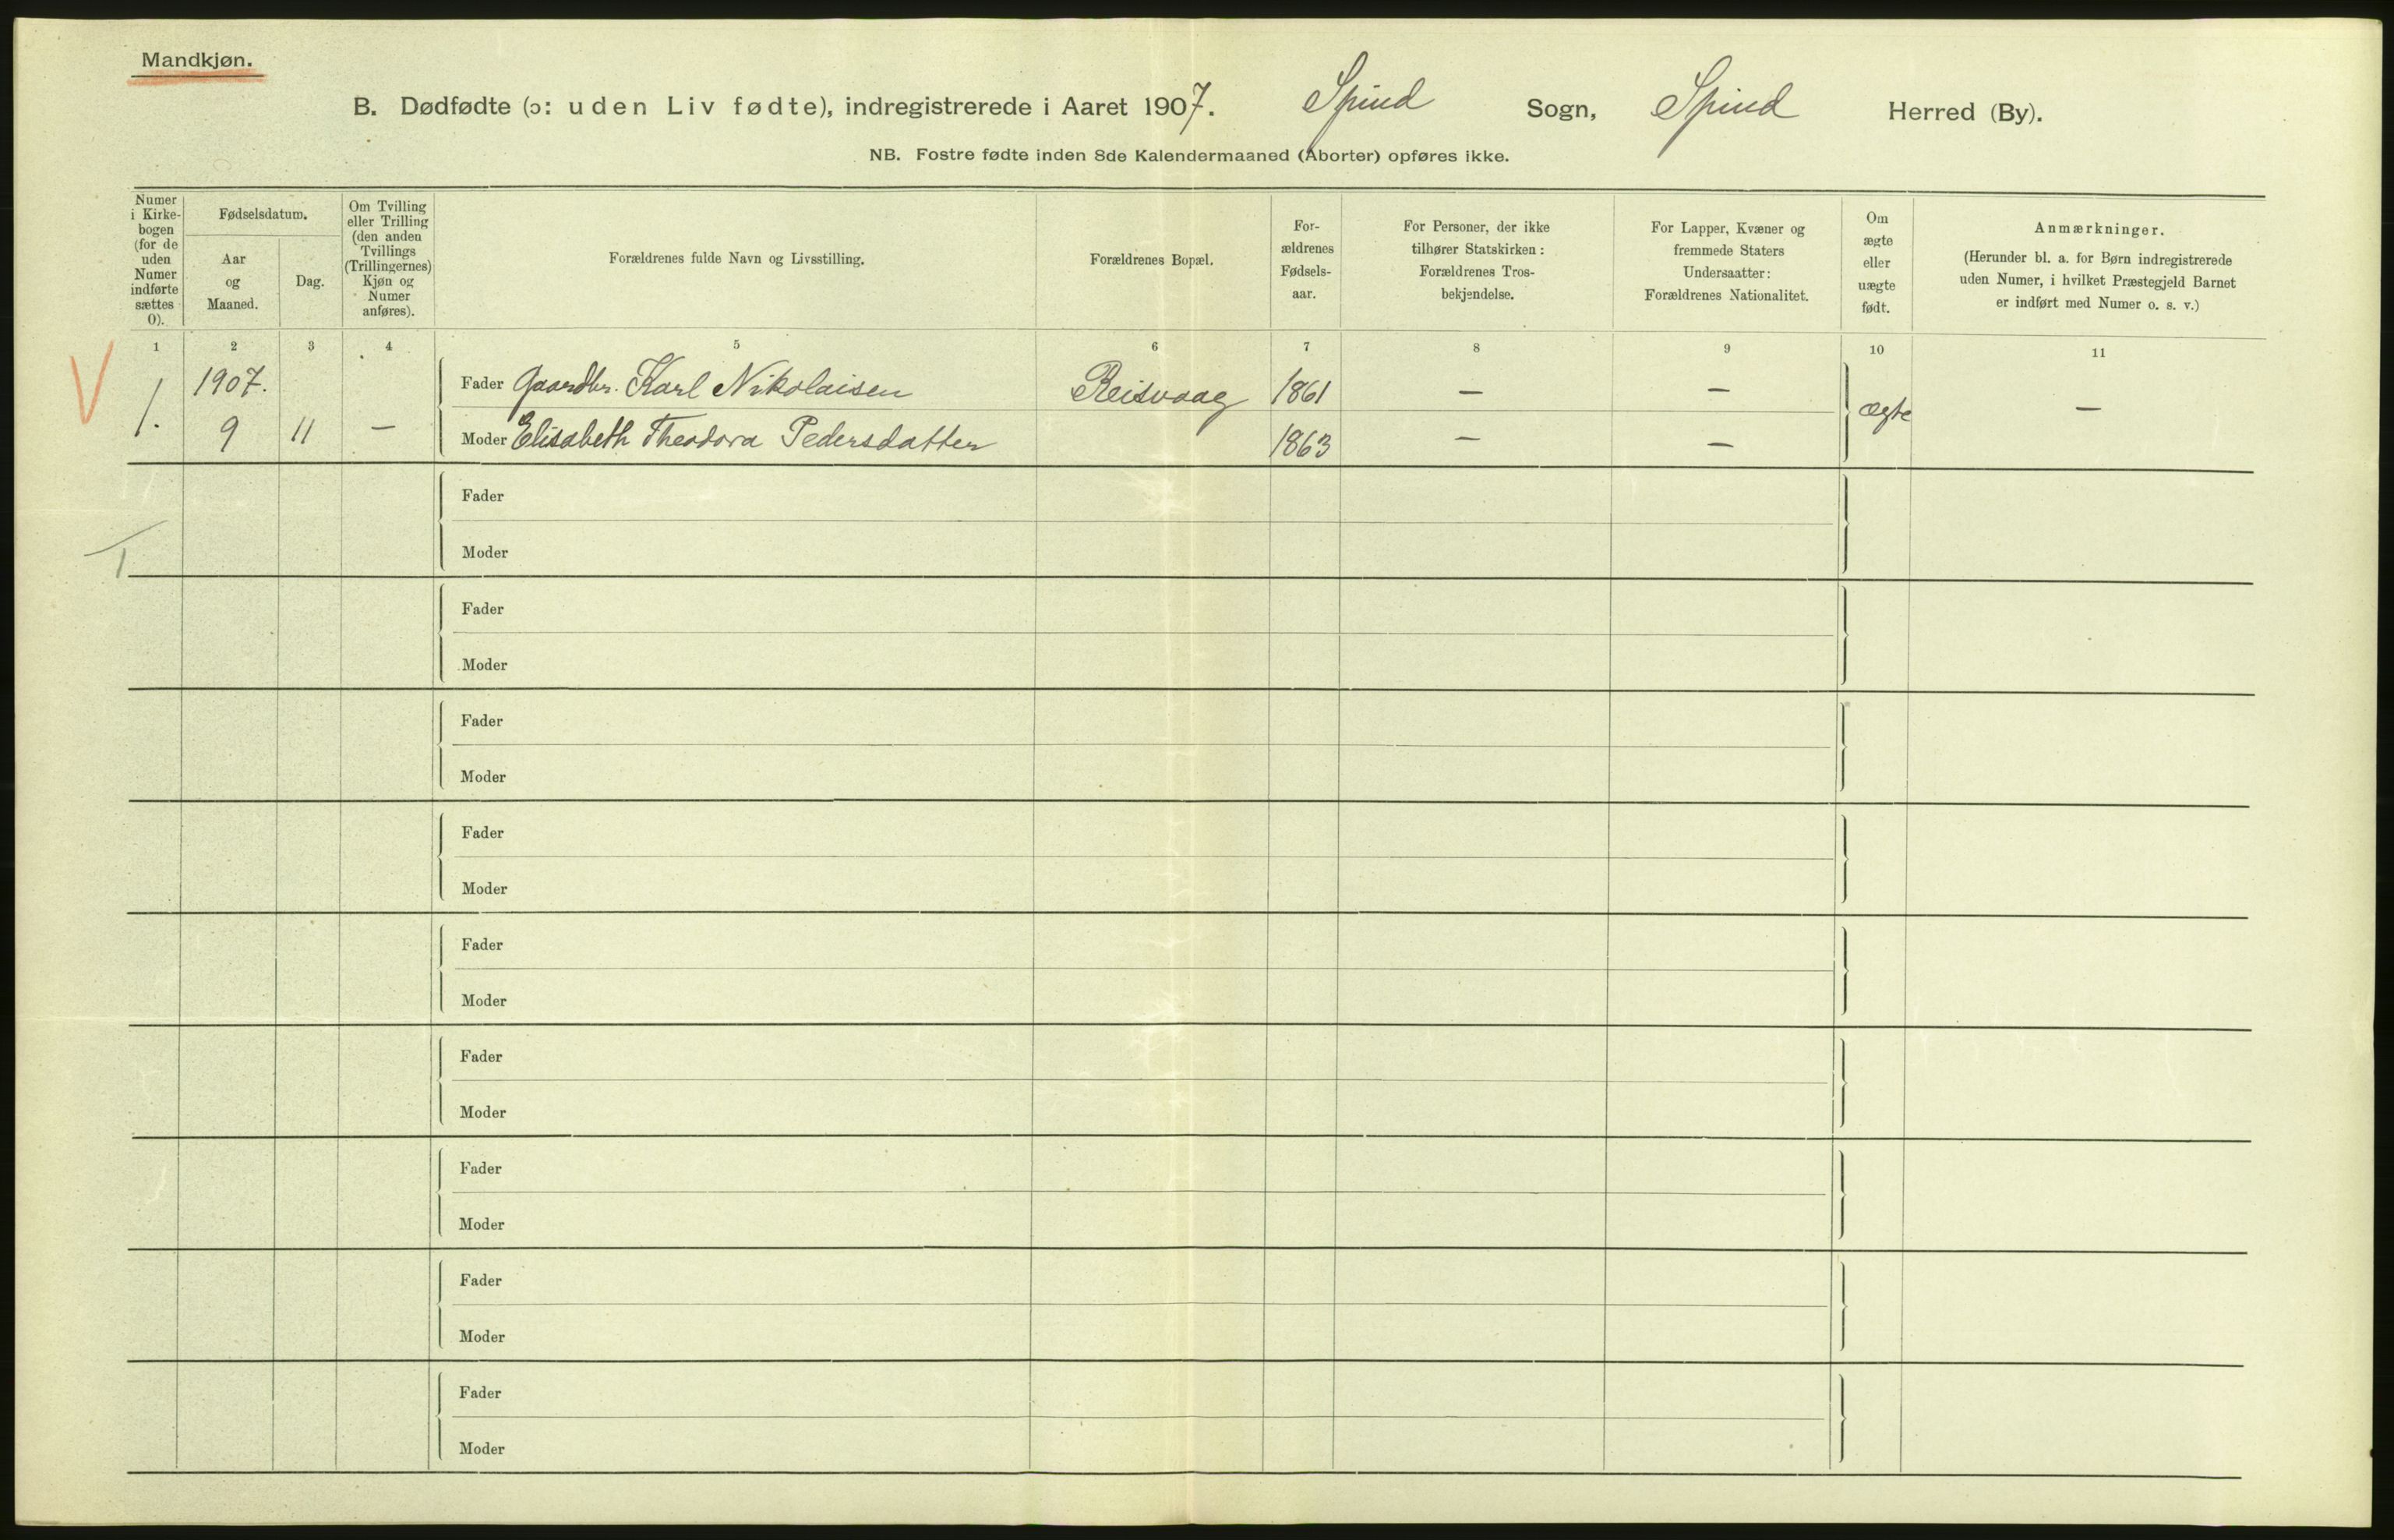 Mandkjøn.
B. Dødfødte (ɔ: uden Liv fødte), indregistrerede i Aaret 1907. Spind Sogn, Spind Herred (By).
NB. Fostre fødte inden 8de Kalendermaaned (Aborter) opføres ikke.
Numer i Kirke-bogen (for de uden Numer indførte sættes 0).
Fødselsdatum.
Aar og Maaned.
Dag.
Om Tvilling eller Trilling (den anden Tvillings (Trillingernes) Kjøn og Numer anføres).
Forældrenes fulde Navn og Livsstilling.
Forældrenes Bopæl.
For-ældrenes Fødsels-aar.
For Personer, der ikke tilhører Statskirken: Forældrenes Tros-bekjendelse.
For Lapper, Kvæner og fremmede Staters Undersaatter: Forældrenes Nationalitet.
Om ægte eller uægte født.
Anmærkninger.
(Herunder bl. a. for Børn indregistrerede uden Numer, i hvilket Præstegjeld Barnet er indført med Numer o. s. v.)
1 2 3 4 5 6 7 8 9 10 11
V
1. 1907. Fader Gaardbr. Karl Nikolaisen Reisvaag 1861 — — ægte —
9 11 — Moder Elisabeth Theodora Pedersdatter 1863 — —
Fader
1
Moder
Fader
Moder
Fader
Moder
Fader
Moder
Fader
Moder
Fader
Moder
Fader
Moder
Fader
Moder
Fader
Moder